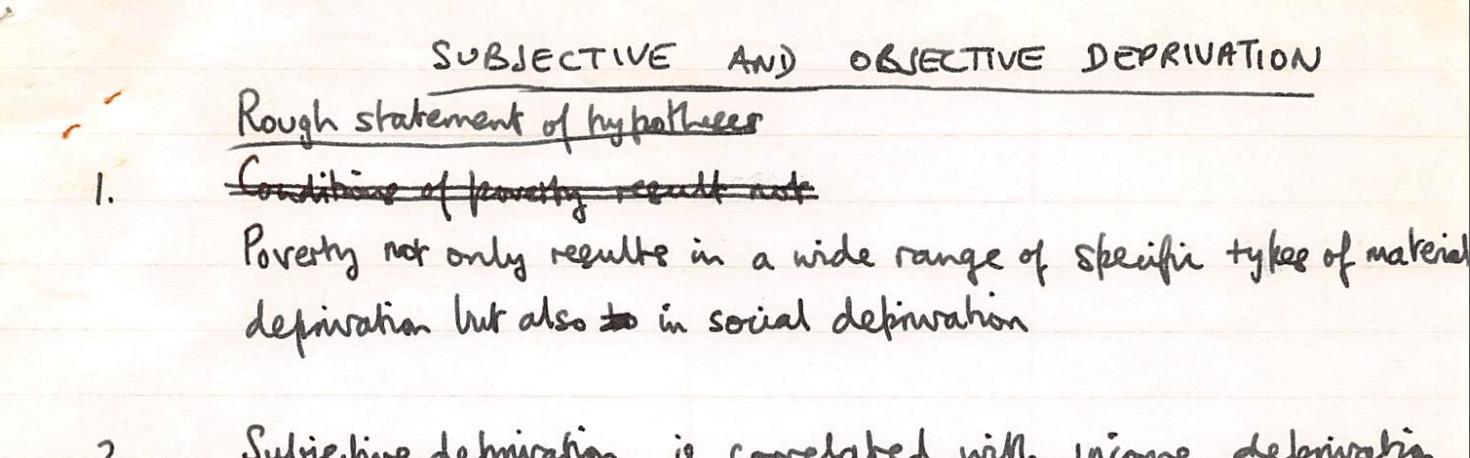 SUBJECTIVE AND OBJECTIVE DEPRIVATION
Rough statement of hypotheses
1. Conditions of poverty result not
Poverty not only results in a wide range of specific types of material
deprivation but also to in social deprivation
2. Subjective deprivation is correlated with income deprivation